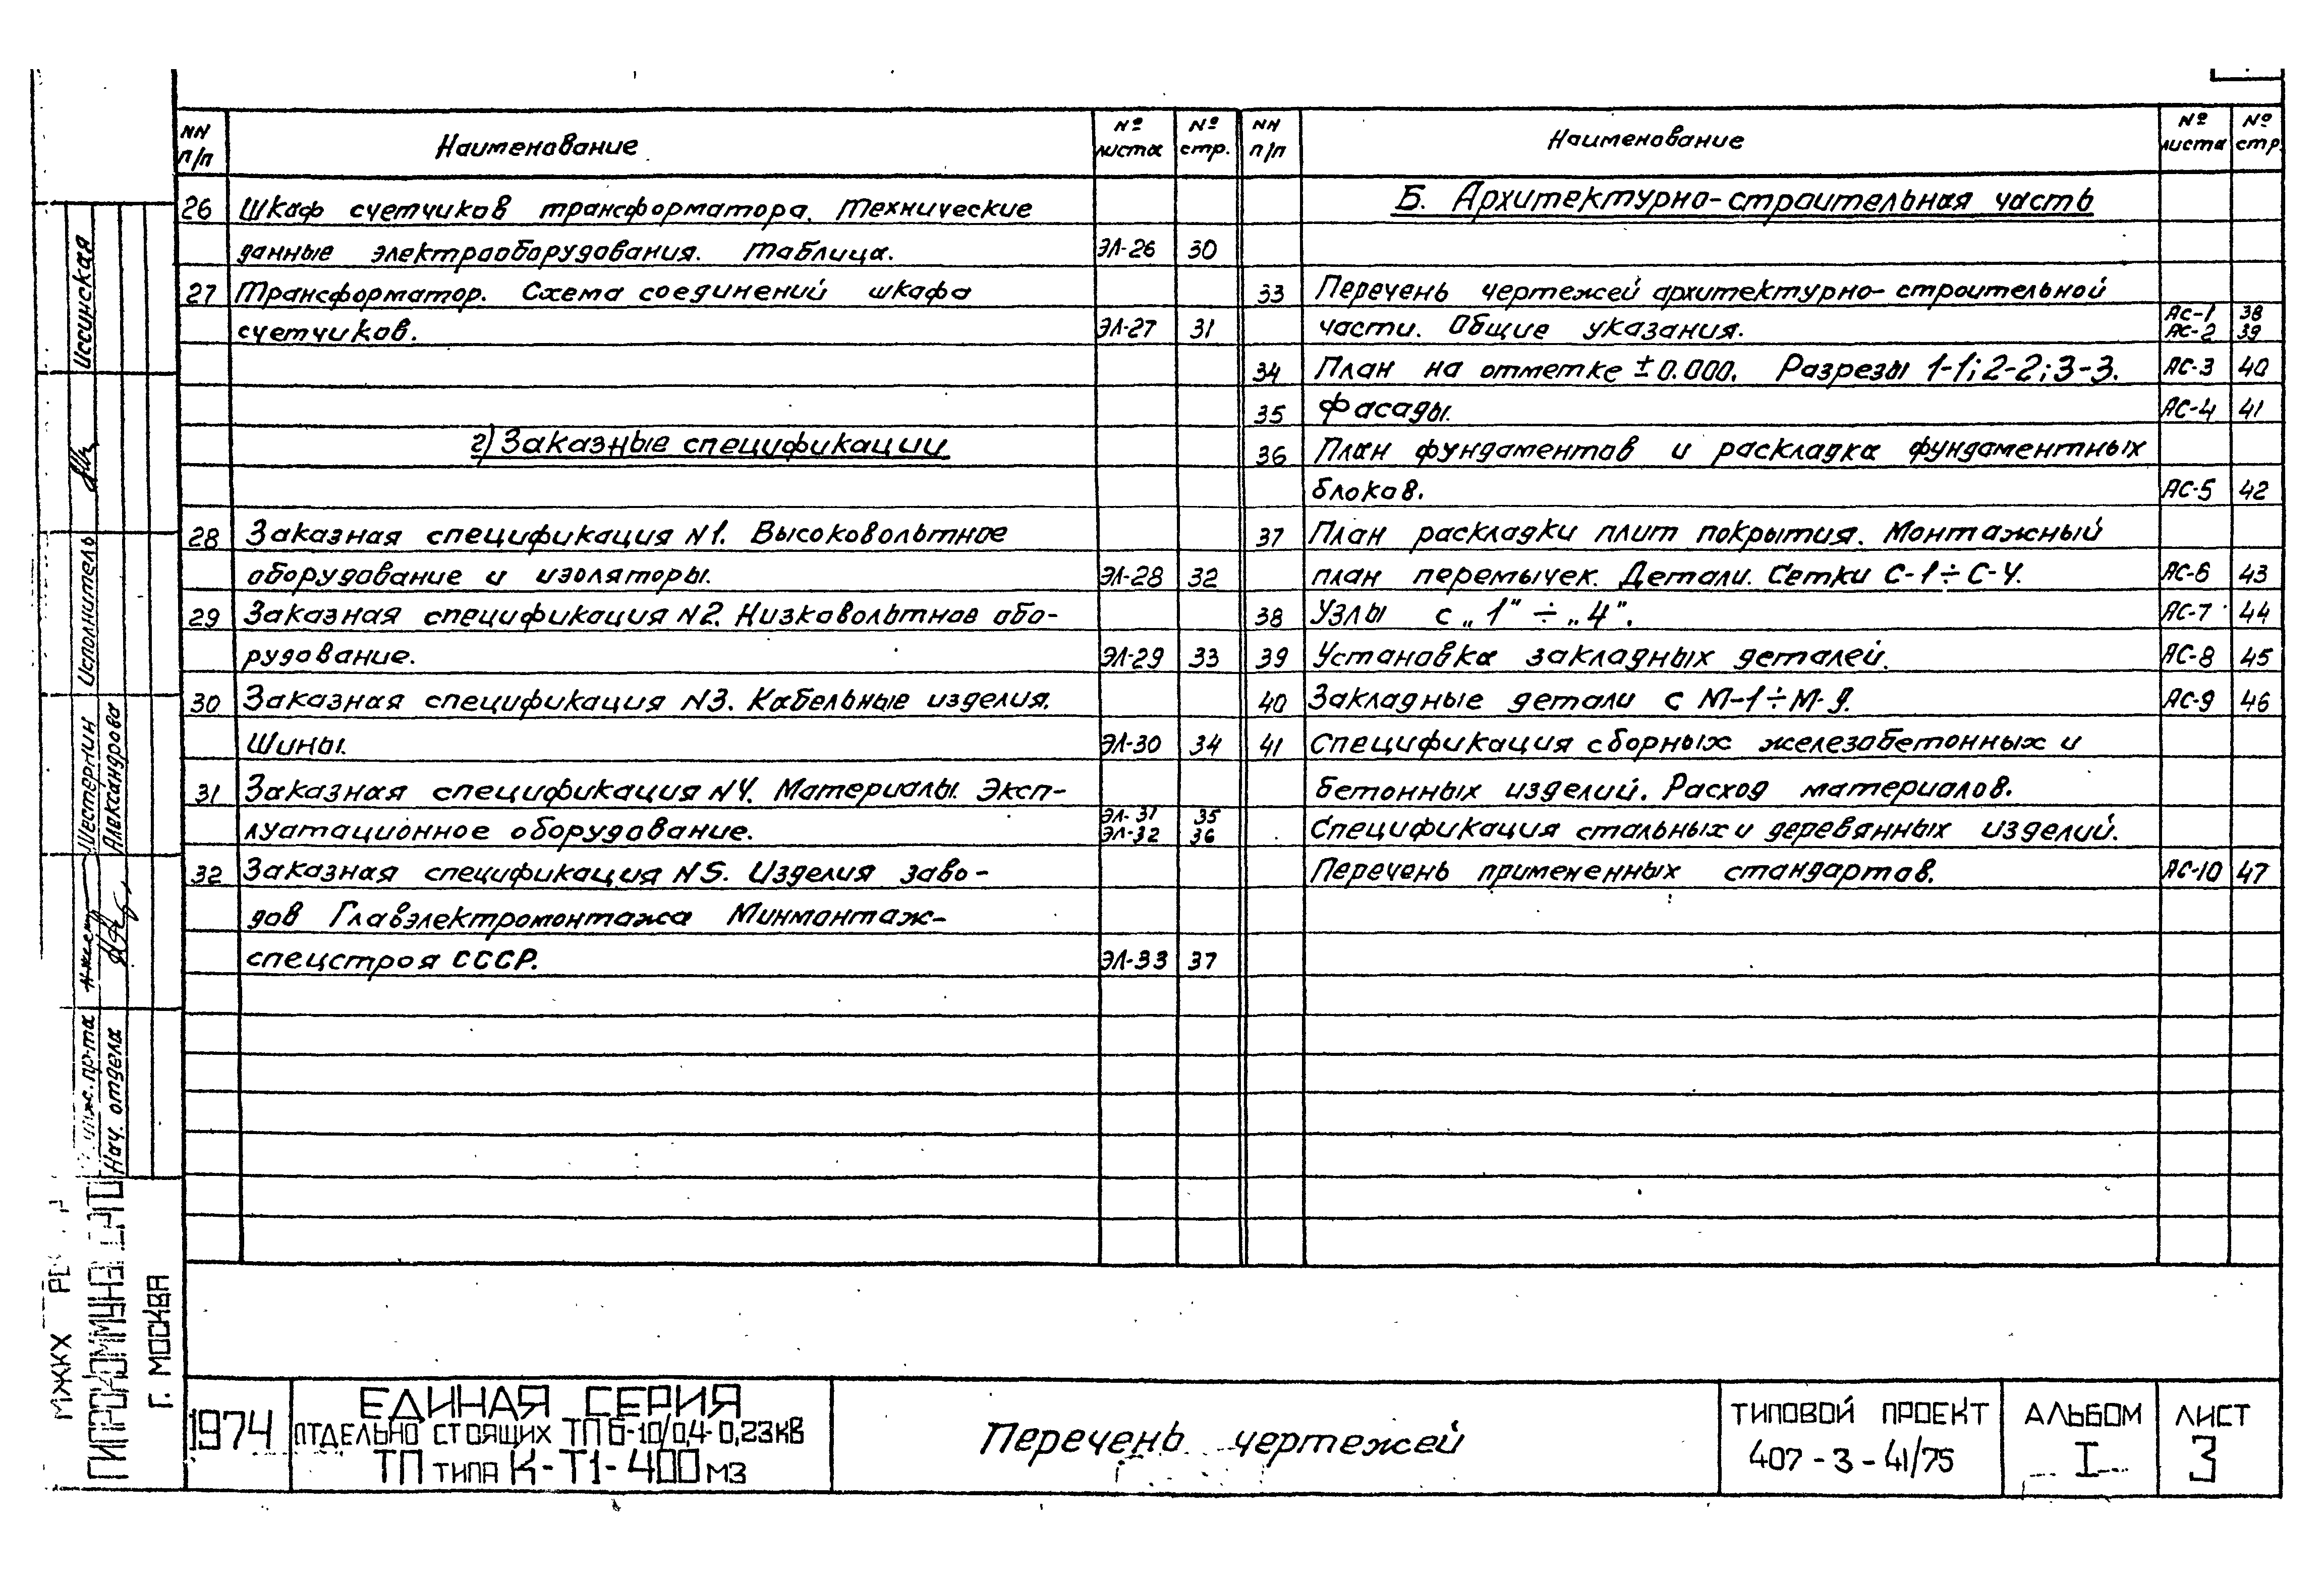 NN п/п Наименование № листа № стр.
26 Шкаф счетчиков трансформатора. Технические
данные электрооборудования. Таблица. ЭЛ-26 30
27 Трансформатор. Схема соединений шкафа
счетчиков. ЭЛ-27 31
г) Заказные спецификации
28 Заказная спецификация N1. Высоковольтное
оборудование и изоляторы. ЭЛ-28 32
29 Заказная спецификация N2. Низковольтное обо-
рудование. ЭЛ-29 33
30 Заказная спецификация N3. Кабельные изделия.
Шины. ЭЛ-30 34
31 Заказная спецификация N4. Материалы. Эксп-
ЭЛ-31 35
луатационное оборудование. ЭЛ-32 36
32 Заказная спецификация N5. Изделия заво-
дов Главэлектромонтажа Минмонтаж-
спецстроя СССР. ЭЛ-33 37
NN п/п Наименование № листа № стр.
Б. Архитектурно-строительная часть
33 Перечень чертежей архитектурно-строительной
АС-1 38
части. Общие указания. АС-2 39
34 План на отметке ±0.000. Разрезы 1-1; 2-2; 3-3. АС-3 40
35 Фасады. АС-4 41
36 План фундаментов и раскладка фундаментных
блоков. АС-5 42
37 План раскладки плит покрытия. Монтажный
план перемычек. Детали. Сетки С-1÷С-4. АС-6 43
38 Узлы с „1"÷„4". АС-7 44
39 Установка закладных деталей. АС-8 45
40 Закладные детали с М-1÷М-9. АС-9 46
41 Спецификация сборных железобетонных и
бетонных изделий. Расход материалов.
Спецификация стальных и деревянных изделий.
Перечень примененных стандартов. АС-10 47
Иссинская
Исполнитель
Шестернин
Александрова
Инж. пр-та
Нач. отдела
МЖКХ
Г. МОСКВА
1974
ЕДИНАЯ СЕРИЯ
ОТДЕЛЬНО СТОЯЩИХ ТП 6-10/0,4-0,23КВ
ТП ТИПА К-Т1-400 МЗ
Перечень чертежей
ТИПОВОЙ ПРОЕКТ
407-3-41/75
АЛЬБОМ
I
ЛИСТ
3